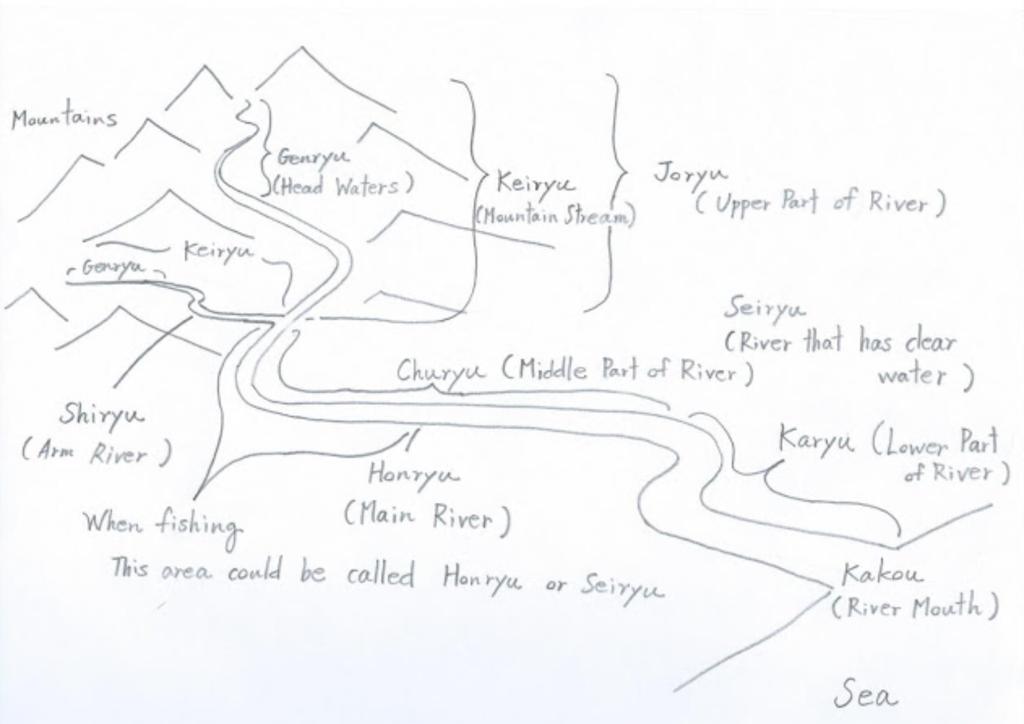 Mountains
Genryu
(Head Waters)
Keiryu
(Mountain Stream)
Joryu
(Upper Part of River)
Keiryu
Genryu
Seiryu
(River that has clear
water)
Churyu (Middle Part of River)
Shiryu
(Arm River)
Karyu (Lower Part
of River)
Honryu
(Main River)
When fishing
This area could be called Honryu or Seiryu
Kakou
(River Mouth)
Sea